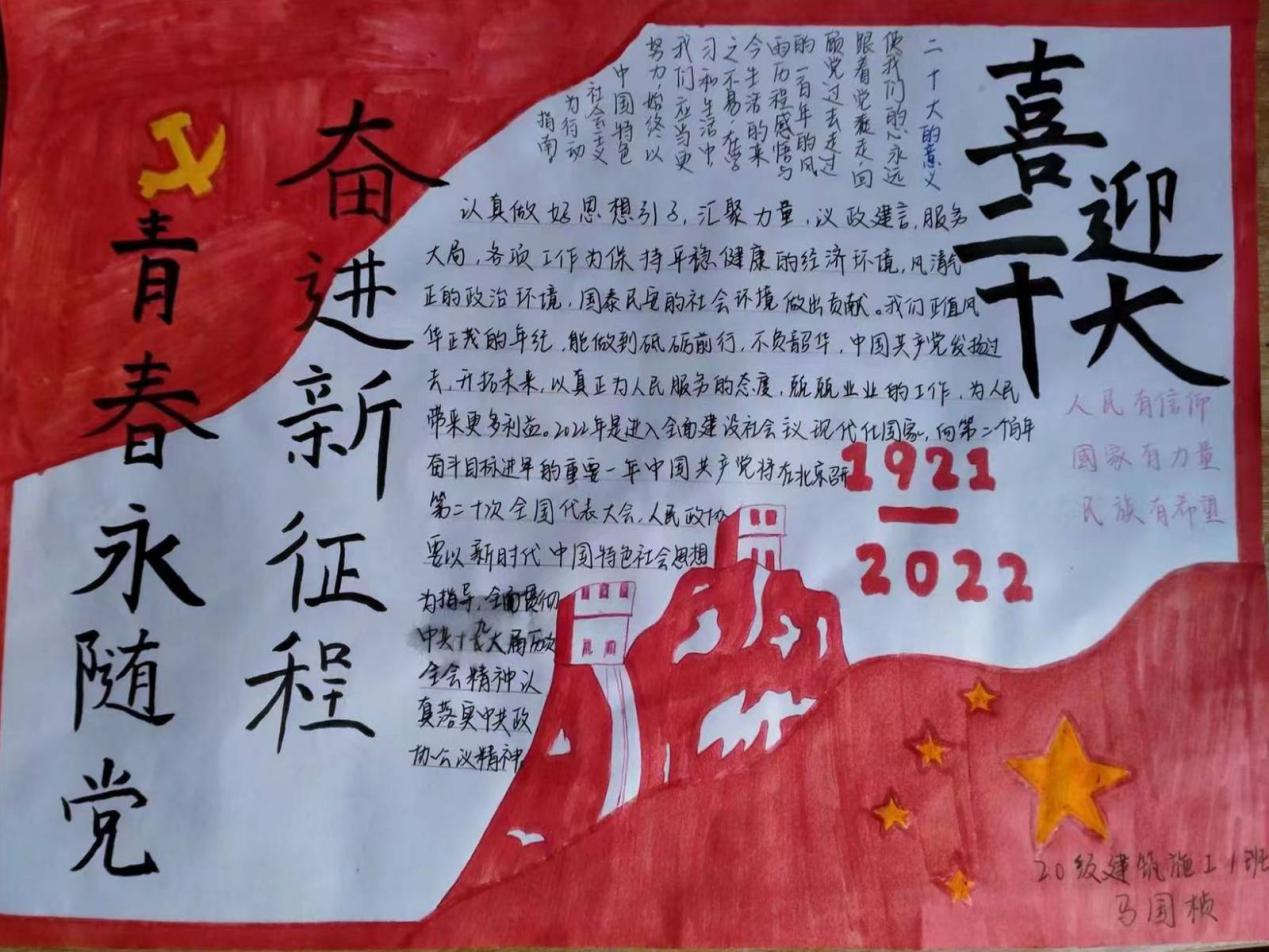 喜迎
二十大
奋进新征程
青春永随党
二十大的意义
使我们的心永远
跟着党走,回
顾党过去走过
的一百年的风
雨历程感悟与
今生活的来
之不易,在学
习和生活中
我们应当更
努力,始终以
中国特色
社会主义
为行动
指南
认真做好思想引,汇聚力量,议政建言,服务
大局,各项工作为保持平稳健康的经济环境,风清气
正的政治环境,国泰民安的社会环境做出贡献。我们正值风
华正茂的年纪,能做到砥砺前行,不负韶华,中国共产党发扬过
去,开拓未来,以真正为人民服务的态度,兢兢业业的工作,为人民
带来更多利益。2022年是进入全面建设社会议现代化国家,向第二个百年
奋斗目标进军的重要一年中国共产党将在北京召开
第二十次全国代表大会,人民政协
要以新时代中国特色社会思想
为指导,全面贯彻
中共十九大届历次
全会精神认
真落实中共政
协会议精神。
1921
—
2022
人民有信仰
國家有力量
民族有希望
20级建筑施工1班
马国桢